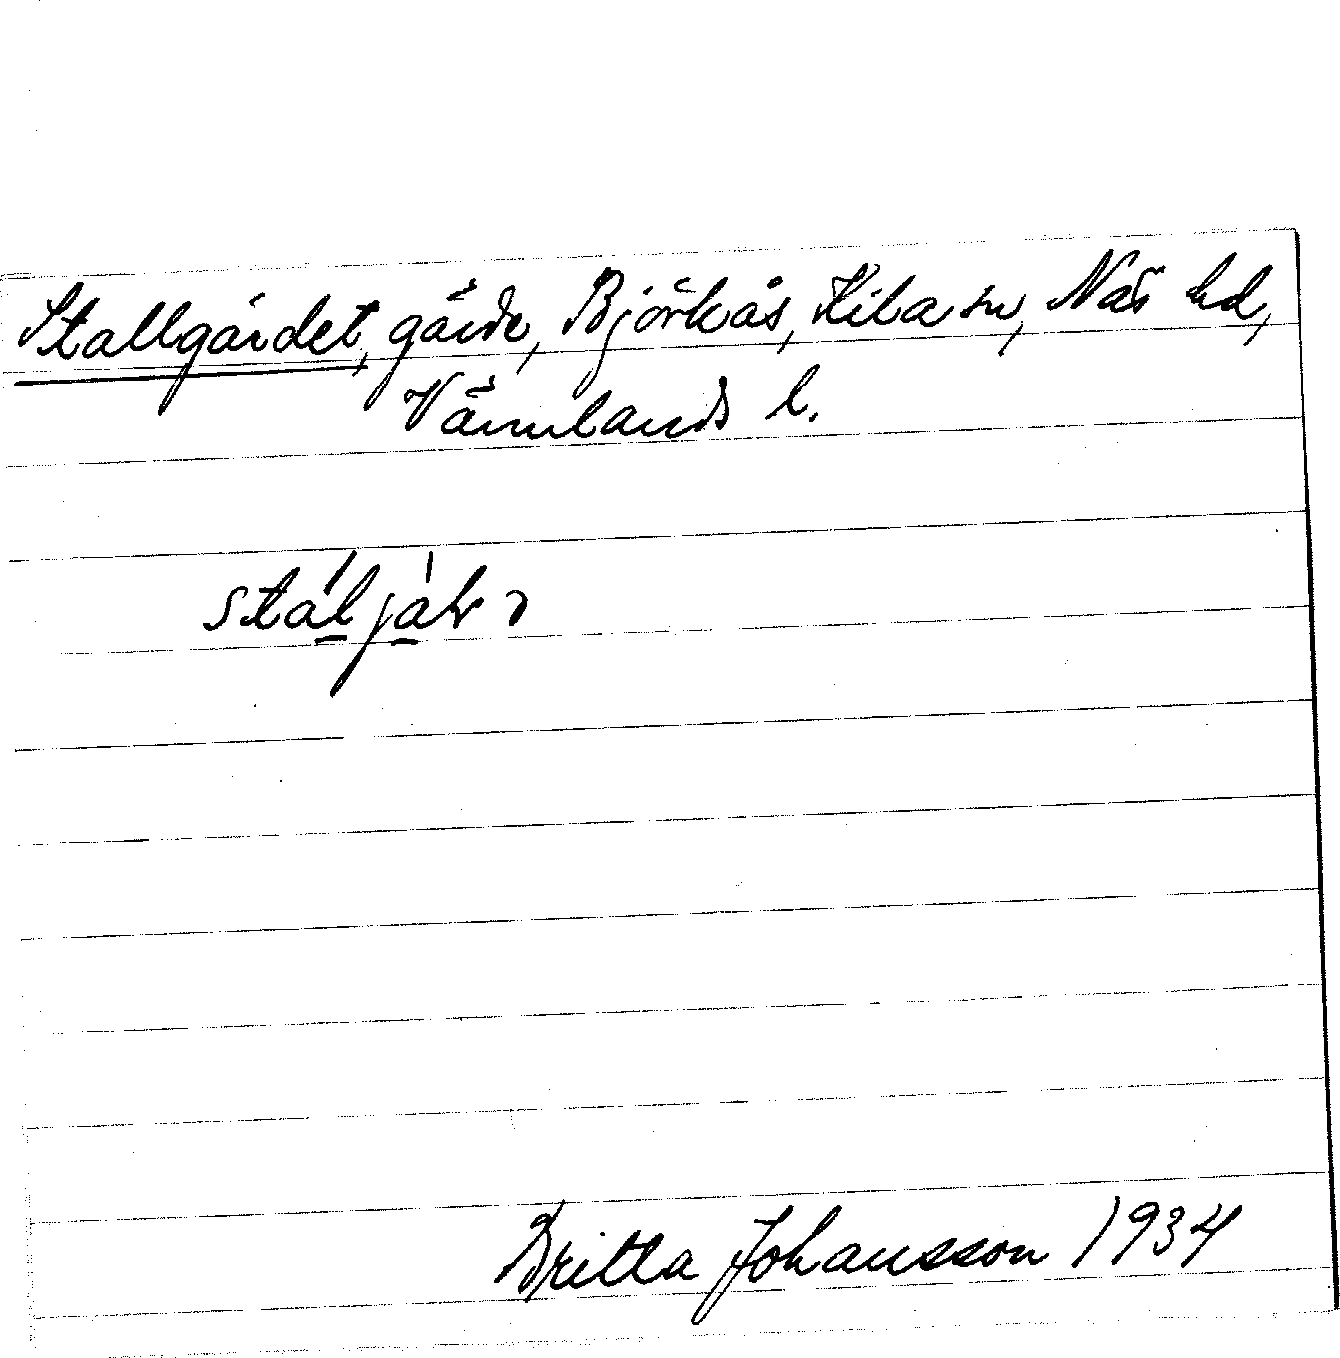 Stallgärdet, gärde, Björkås, Kila sn, Näs hd,
Värmlands l.
Britta Johansson 1934